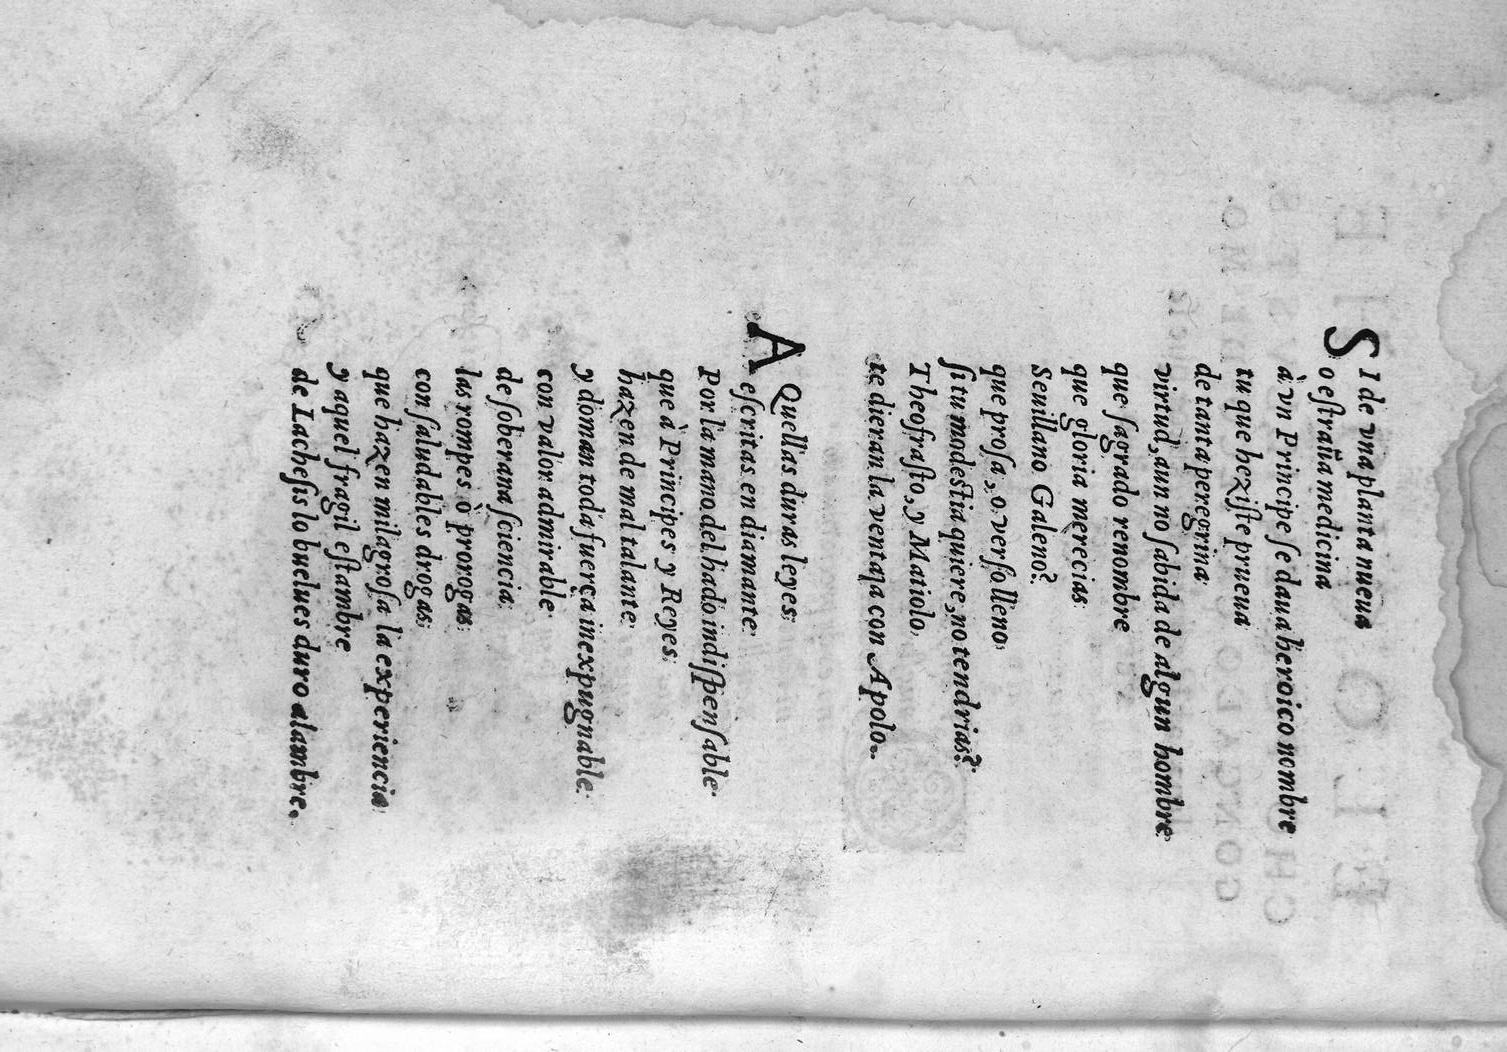 SI de vna planta nueua
o estraña medicina
à vn Principe se daua heroico nombre
tu que heziste prueua
de tanta peregrina
virtud, aun no sabida de algun hombre:
que sagrado renombre
que gloria merecias
Seuillano Galeno?
que prosa, o verso lleno,
si tu modestia quiere, no tendrias?
Theofrasto, y Matiolo,
te dieran la ventaja con Apolo.
AQuellas duras leyes,
escritas en diamante
Por la mano del hado indispensable
que à Principes y Reyes
hazen de mal talante
y doman toda fuerça inexpugnable:
con valor admirable
de soberana sciencia
las rompes ò prorogas:
con saludables drogas,
que hazen milagrosa la experiencia
y aquel fragil estambre
de Lachesis lo buelues duro alambre.